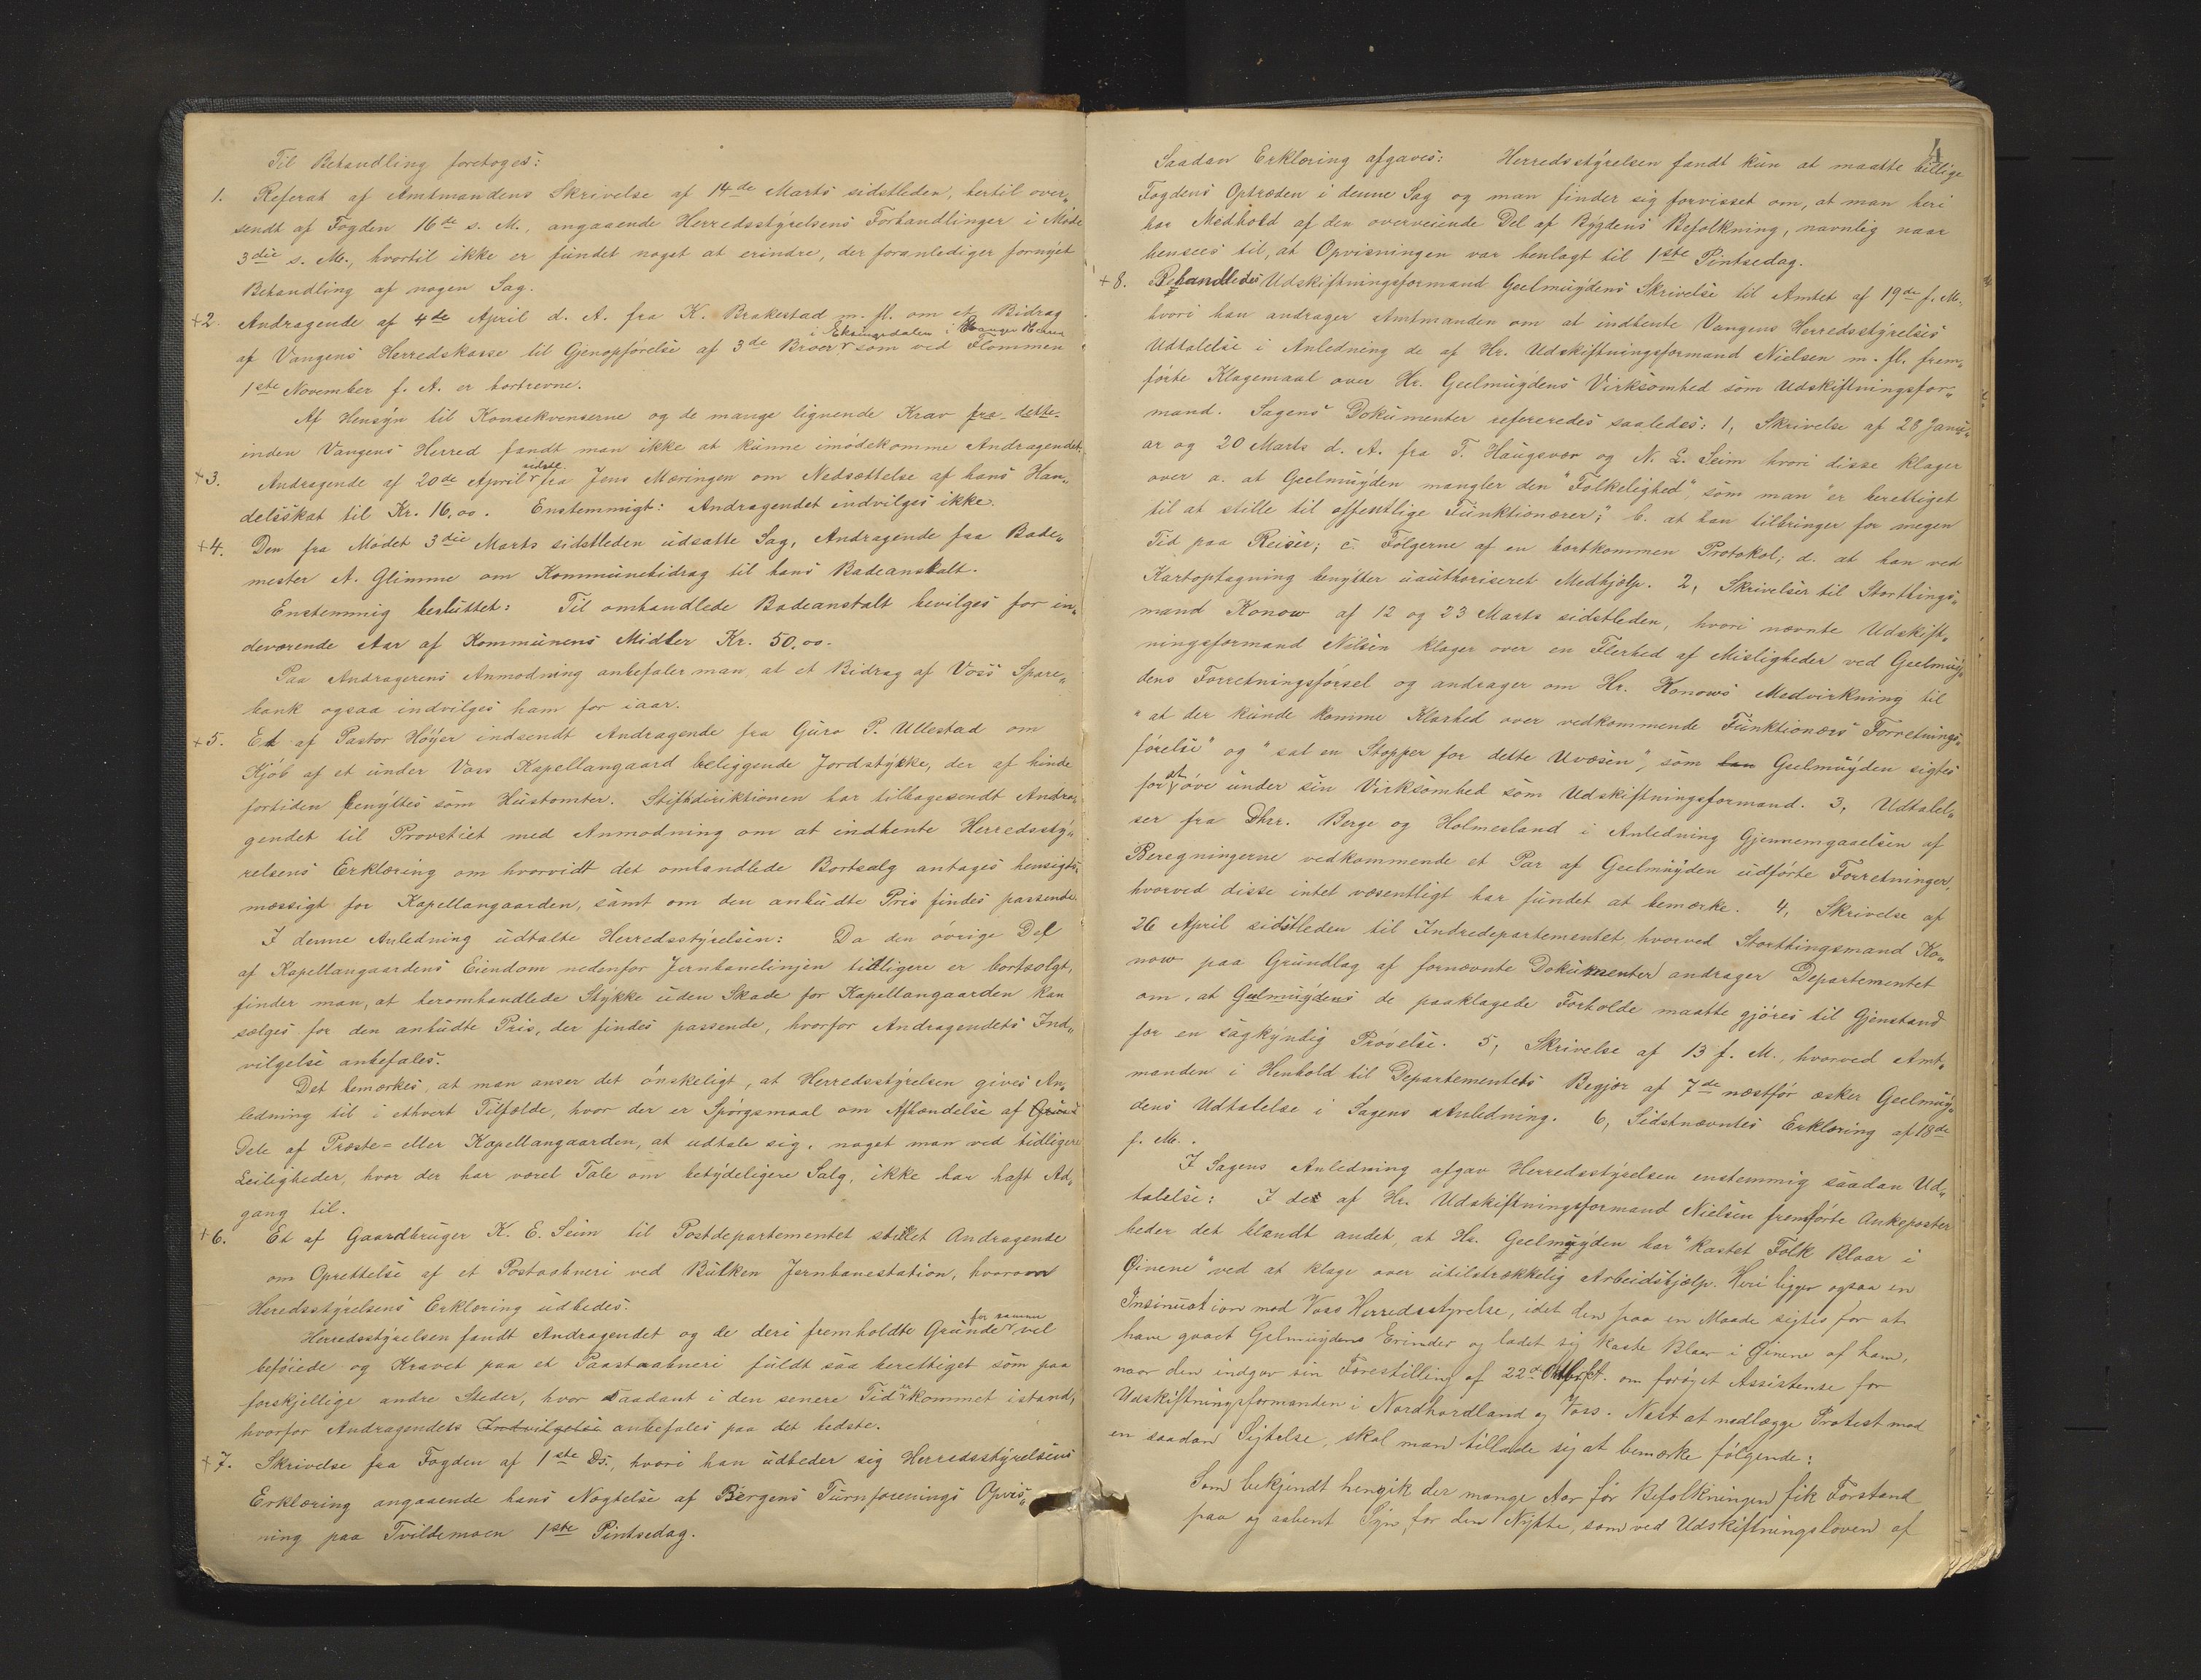 Til Behandling foretoges:
1. Referat af Amtmandens Skrivelse af 14de Marts sidstleden, hertil over„
sendt af Fogden 16de s. M., angaaende Herredsstÿrelsens Forhandlinger i Møde
3die s. M., hvortil ikke er fundet noget at erindre, der foranlediger fornÿet
Behandling af nogen Sag.
+2. Andragende af 4de April d. A. fra K. Brakestad m. fl. om et Bidrag
i Eksingedalen i Herred
af Vangens Herredskasse til Gjenopførelse af 3de Broer som ved Flommen
1ste November f. A. er bortrevne.
Af Hensÿn til Konsekvenserne og de mange lignende Krav fra dette
inden Vangens Herred fandt man ikke at kunne imødekomme Andragendet.
sidste
+3. Andragende af 20de April fra Jens Mæringen om Nedsættelse af hans Han„
delsskat til Kr. 16,00. Enstemmigt: Andragendet indvilges ikke.
+4. Den fra Mødet 3die Marts sidstleden udsatte Sag, Andragende fra Bade„
mester A. Glimme om Kommunebidrag til hans Badeanstalt.
Enstemmig besluttet: Til omhandlede Badeanstalt bevilges for in„
deværende Aar af Kommunens Midler Kr. 50,00.
Paa Andragerens Anmodning anbefaler man, at et Bidrag af Voss Spare„
bank ogsaa indvilges ham for iaar.
+5. Et af Pastor Høÿer indsendt Andragende fra Guro P. Ullestad om
Kjøb af et under Voss Kapellangaard beliggende Jordstÿkke, der af hende
fortiden benÿttes som Hustomter. Stiftdirektionen har tilbagesendt Andra„
gendet til Provstiet med Anmodning om at indhente Herredsstÿ„
relsens Erklæring om hvorvidt det omhandlede Bortsalg antages hensigts„
mæssigt for Kapellangaarden, samt om den anbudte Pris findes passende.
I denne Anledning udtalte Herredsstÿrelsen: Da den øvrige Del
af Kapellangaardens Eiendom nedenfor Jernbanelinjen tidligere er bortsolgt,
finder man, at heromhandlede Stÿkke uden Skade for Kapellangaarden kan
sælges for den anbudte Pris, der findes passende, hvorfor Andragendets Ind„
vilgelse anbefales.
Det bemærkes, at man anser det ønskeligt, at Herredsstÿrelsen gives An„
ledning til i ethvert Tilfælde, hvor der er Spørgsmaal om Afhændelse af
Dele af Præste= eller Kapellangaarden, at udtale sig, noget man ved tidligere
Leiligheder, hvor der har været Tale om betÿdeligere Salg, ikke har haft Ad„
gang til.
+6. Et af Gaardbruger K. E. Seim til Postdepartementet stillet Andragende
om Oprettelse af et Postaabneri ved Bulken Jernbanestation, hvorom
Heredsstÿrelsens Erklæring udbedes.
for samme
Herredsstÿrelsen fandt Andragendet og de deri fremholdte Grunde vel
beføiede og Kravet paa et Paastaabneri fuldt saa berettiget som paa
forskjellige andre Steder, hvor saadant i den senere Tid er kommet istand,
hvorfor Andragendets Indvilgelse anbefales paa det bedste.
+7. Skrivelse fra Fogden af 1ste Ds., hvori han udbeder sig Herredsstÿrelsens
Erklæring angaaende hans Nægtelse af Bergens Turnforenings Opvis„
ning paa Tvildemoen 1ste Pintsedag.
4
Saadan Erklæring afgaves: Herredsstÿrelsen fandt kun at maatte billige
Fogdens Optræden i denne Sag og man finder sig forvisset om, at man heri
har Medhold af den overveiende Del af Bÿgdens Befolkning, navnlig naar
hensees til, at Opvisningen var henlagt til 1ste Pintsedag.
+8. Behandledes Udskiftningsformand Geelmuÿdens Skrivelse til Amtet af 19de f. M.
hvori han andrager Amtmanden om at indhente Vangens Herredsstÿrelses
Udtalelse i Anledning de af Hr. Udskiftningsformand Nielsen m. fl. frem„
førte Klagemaal over Hr. Geelmuÿdens Virksomhed som Udskiftningsfor„
mand. Sagens Dokumenter refereredes saaledes: 1, Skrivelse af 28 Janu„
ar og 20 Marts d. A. fra T. Haugsvær og N. L. Seim hvori disse klager
over a. at Geelmuÿden mangler den "Folkelighed", som man "er berettiget
til at stille til offentlige Funktionærer;" b. at han tilbringer for megen
Tid paa Reiser; c. Følgerne af en bortkommen Protokol; d. at han ved
Kartoptagning benÿtter uauthoriseret Medhjælp. 2, Skrivelser til Storthings„
mand Konow af 12 og 23 Marts sidstleden, hvori nævnte Udskift„
ningsformand Nilsen klager over en Flerhed af Misligheder ved Geelmuÿ„
dens Forretningsførsel og andrager om Hr. Konows Medvirkning til
"at der kunde komme Klarhed over vedkommende Funktionærs Forretnings„
førelse" og "sat en Stopper for dette Uvæsen", som han Geelmuÿden sigtes
for at øve under sin Virksomhed som Udskiftningsformand. 3, Udtalel„
ser fra Dhrr. Berge og Holmesland i Anledning Gjennemgaaelsen af
Beregningerne vedkommende et Par af Geelmuÿden udførte Forretninger,
hvorved disse intet væsentligt har fundet at bemærke. 4, Skrivelse af
26 April sidstleden til Indredepartementet hvorved Storthingsmand Ko„
now paa Grundlag af fornævnte Dokumenter andrager Departementet
om, at Gelmuÿdens de paaklagede Forholde maatte gjøres til Gjenstand
for en sagkÿndig Prøvelse. 5, Skrivelse af 13 f. M., hvorved Amt„
manden i Henhold til Departementets Begjær af 7de næstfør æsker Geelmuÿ„
dens Udtalelse i Sagens Anledning. 6, Sidstnævntes Erklæring af 18de
f. M..
I Sagens Anledning afgav Herredsstÿrelsen enstemmig saadan Ud„
talelse: I det af Hr. Udskiftningsformand Nielsen fremførte Ankeposter
heder det blandt andet, at Hr. Geelmuÿden har "kastet Folk Blaar i
Øinene" ved at klage over utilstrækkelig Arbeidshjælp. Heri ligger ogsaa en
Insinuation mod Voss Herredsstyrelse, idet den paa en Maade sigtes for at
have gaaet Gelmuydens Erinder og ladet sig kaste Blaar i Øinene af ham,
naar den indgav sin Forestilling af 22de om forøget Assistense for
Udskiftningsformanden i Nordhordland og Voss. Næst at nedlægge Protest mod
en saadan Sigtelse, skal man tillade sig at bemærke følgende:
Som bekjendt hengik der mange Aar før Befolkningen fik Forstand
paa og aabent Syn for den Nytte, som ved Udskiftningsloven af